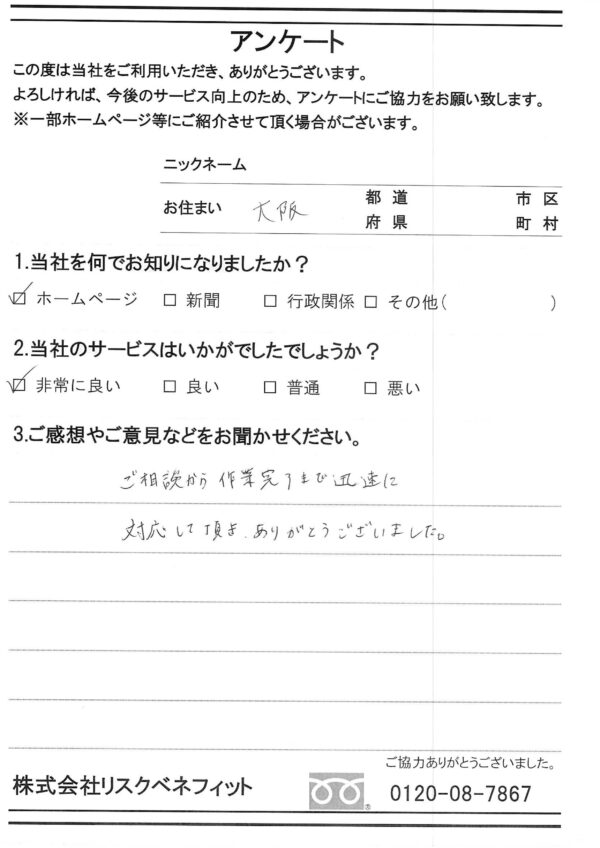 アンケート
この度は当社をご利用いただき、ありがとうございます。
よろしければ、今後のサービス向上のため、アンケートにご協力をお願い致します。
※一部ホームページ等にご紹介させて頂く場合がございます。
ニックネーム
お住まい 大阪 都 道 府 県 市 区 町 村
1.当社を何でお知りになりましたか？
☑ ホームページ □ 新聞 □ 行政関係 □ その他( )
2.当社のサービスはいかがでしたでしょうか？
☑ 非常に良い □ 良い □ 普通 □ 悪い
3.ご感想やご意見などをお聞かせください。
ご相談から作業完了まで迅速に
対応して頂き、ありがとうございました。
ご協力ありがとうございました。
株式会社リスクベネフィット
0120-08-7867